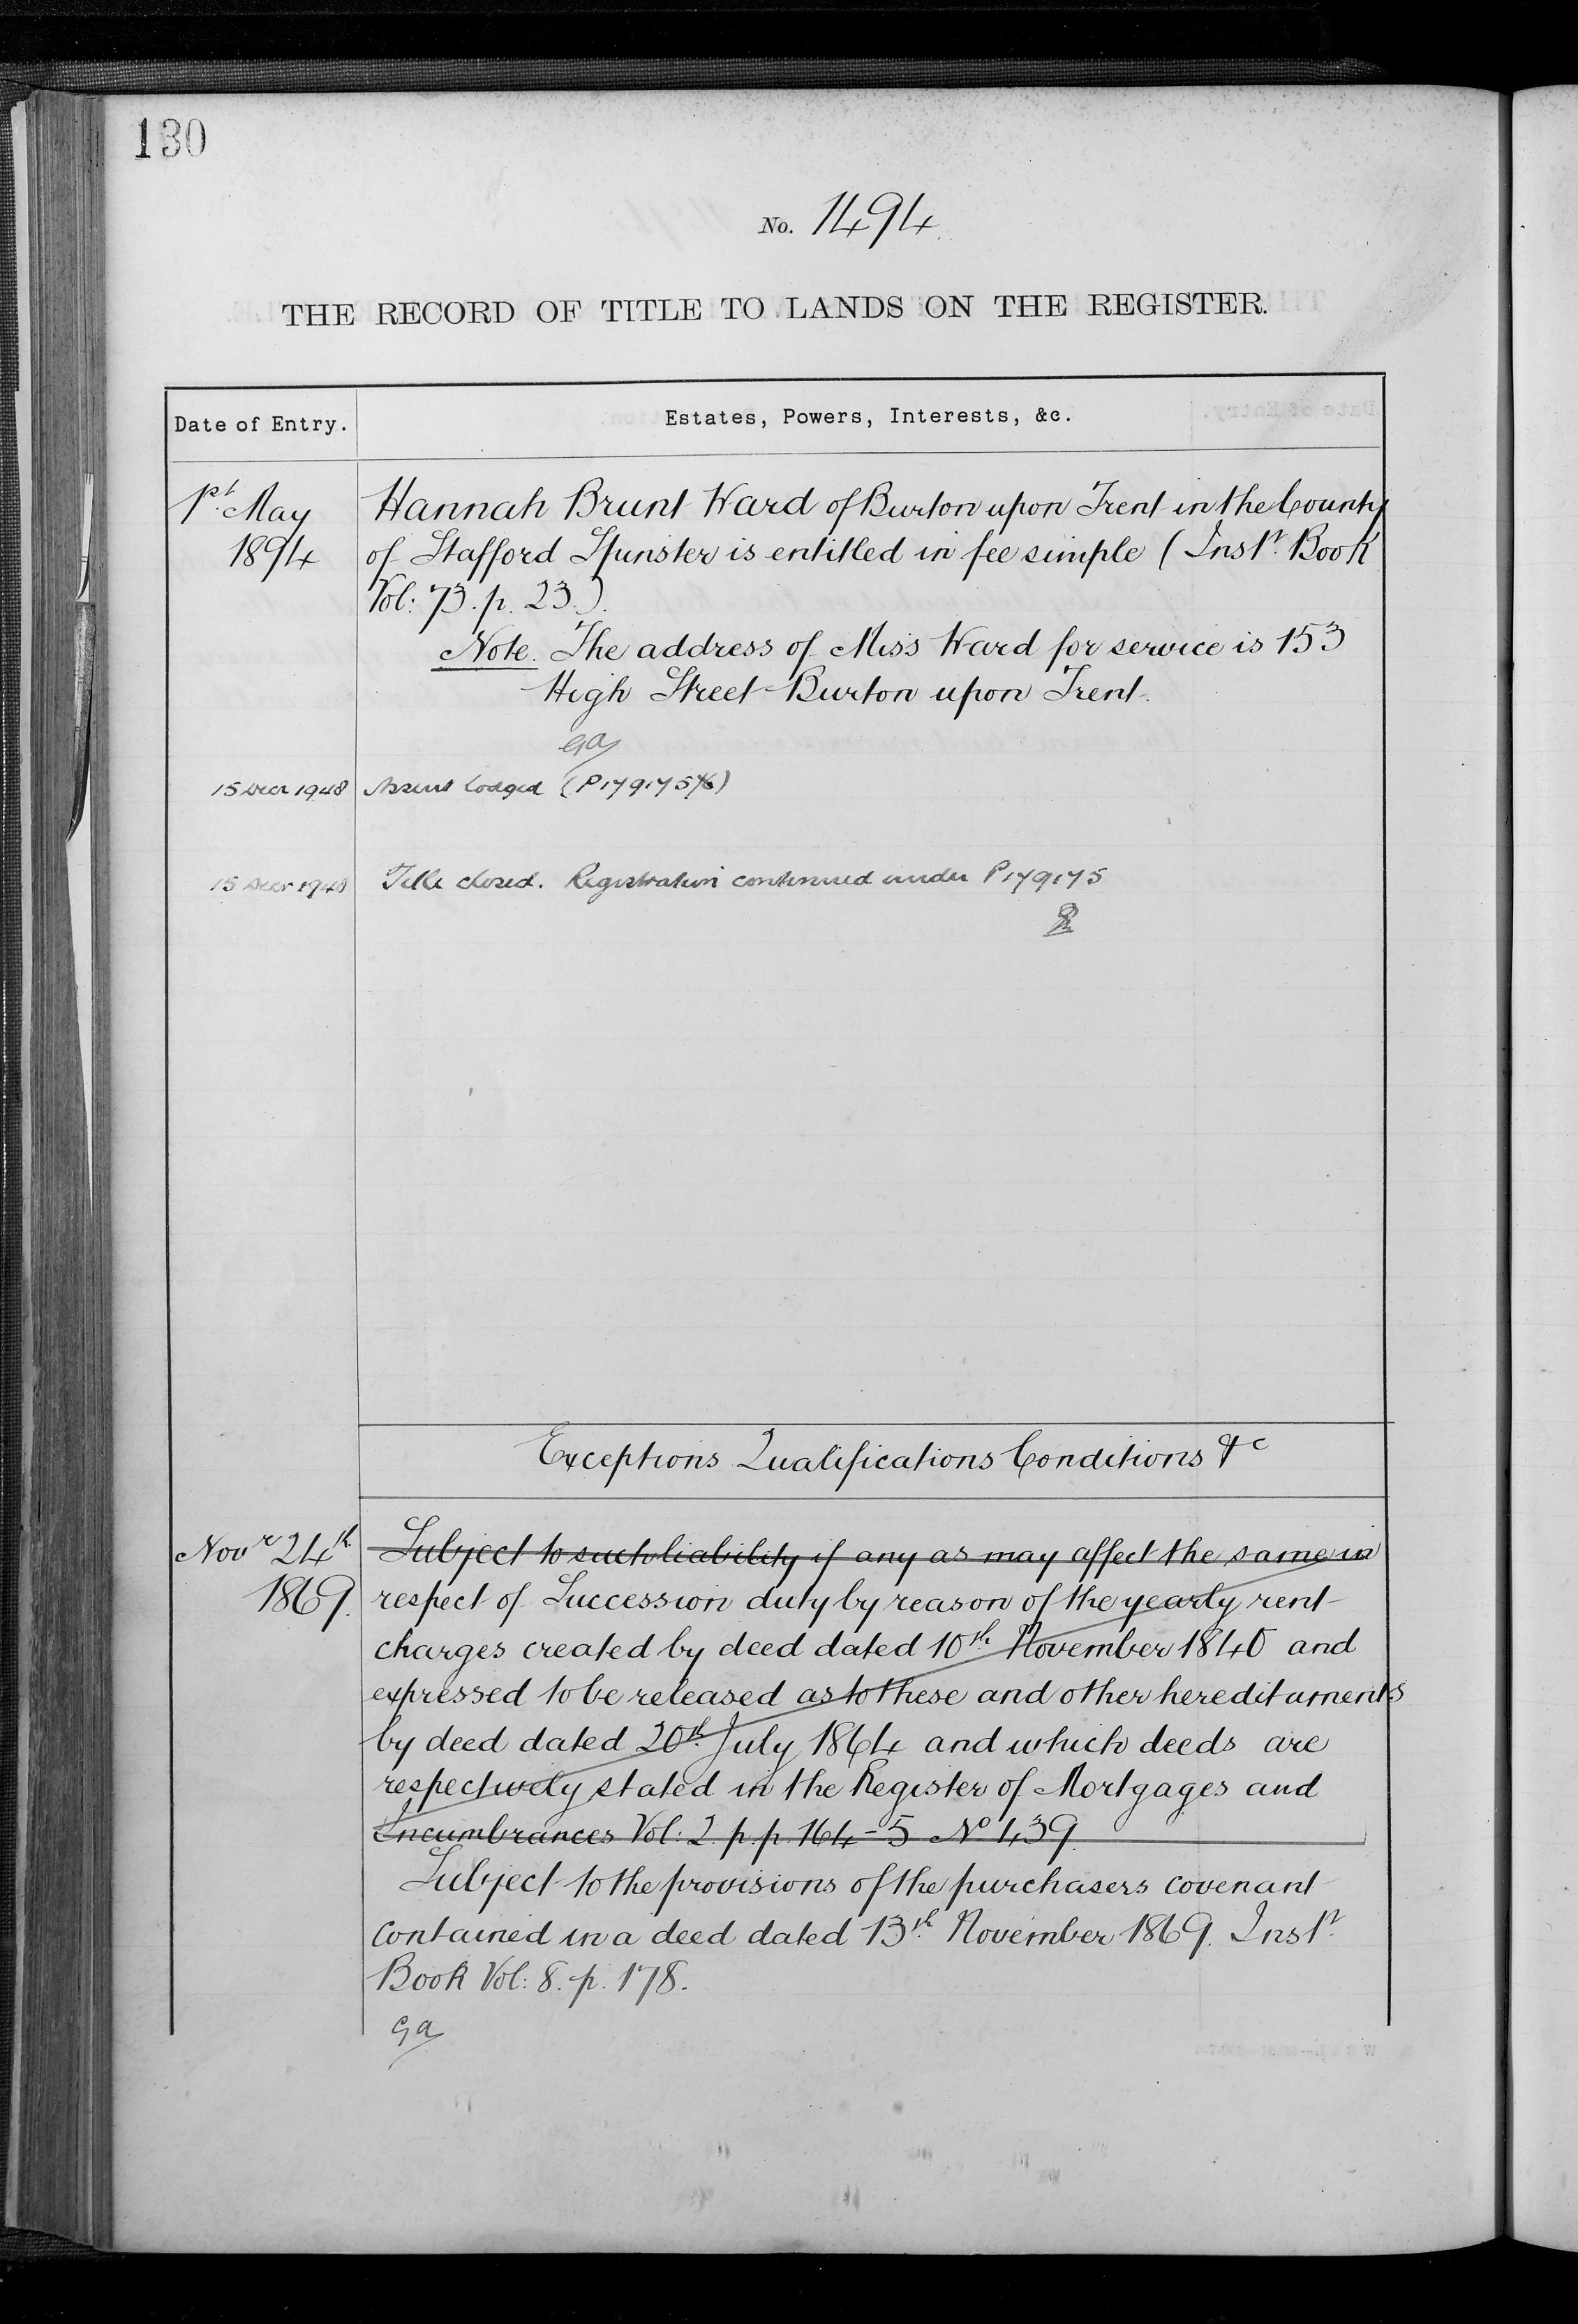 130
No. 1494.
THE RECORD OF TITLE TO LANDS ON THE REGISTER.
Date of Entry. Estates, Powers, Interests, &c.
1st. May Hannah Brunt Ward of Burton upon Trent in the County
1894 of Stafford Spinster is entitled in fee simple (Instt. Book
Vol: 73. p. 23.).
Note. The address of Miss Ward for service is 153
High Street Burton upon Trent.
GA
15 Decr 1948 Assent lodged (P179175/6)
15 Decr 1948 Title closed. Registration continued under P179175
Exceptions Qualifications Conditions &c
Novr 24th Subject to such liability if any as may affect the same in
1869. respect of Succession duty by reason of the yearly rent
charges created by deed dated 10th November 1840 and
expressed to be released as to these and other hereditaments
by deed dated 20th. July 1864 and which deeds are
respectively stated in the Register of Mortgages and
Incumbrances Vol: 2 p.p. 164-5 No 439.
Subject to the provisions of the purchasers covenant
contained in a deed dated 13th. November 1869. Instt.
Book Vol: 8. p. 178.
GA